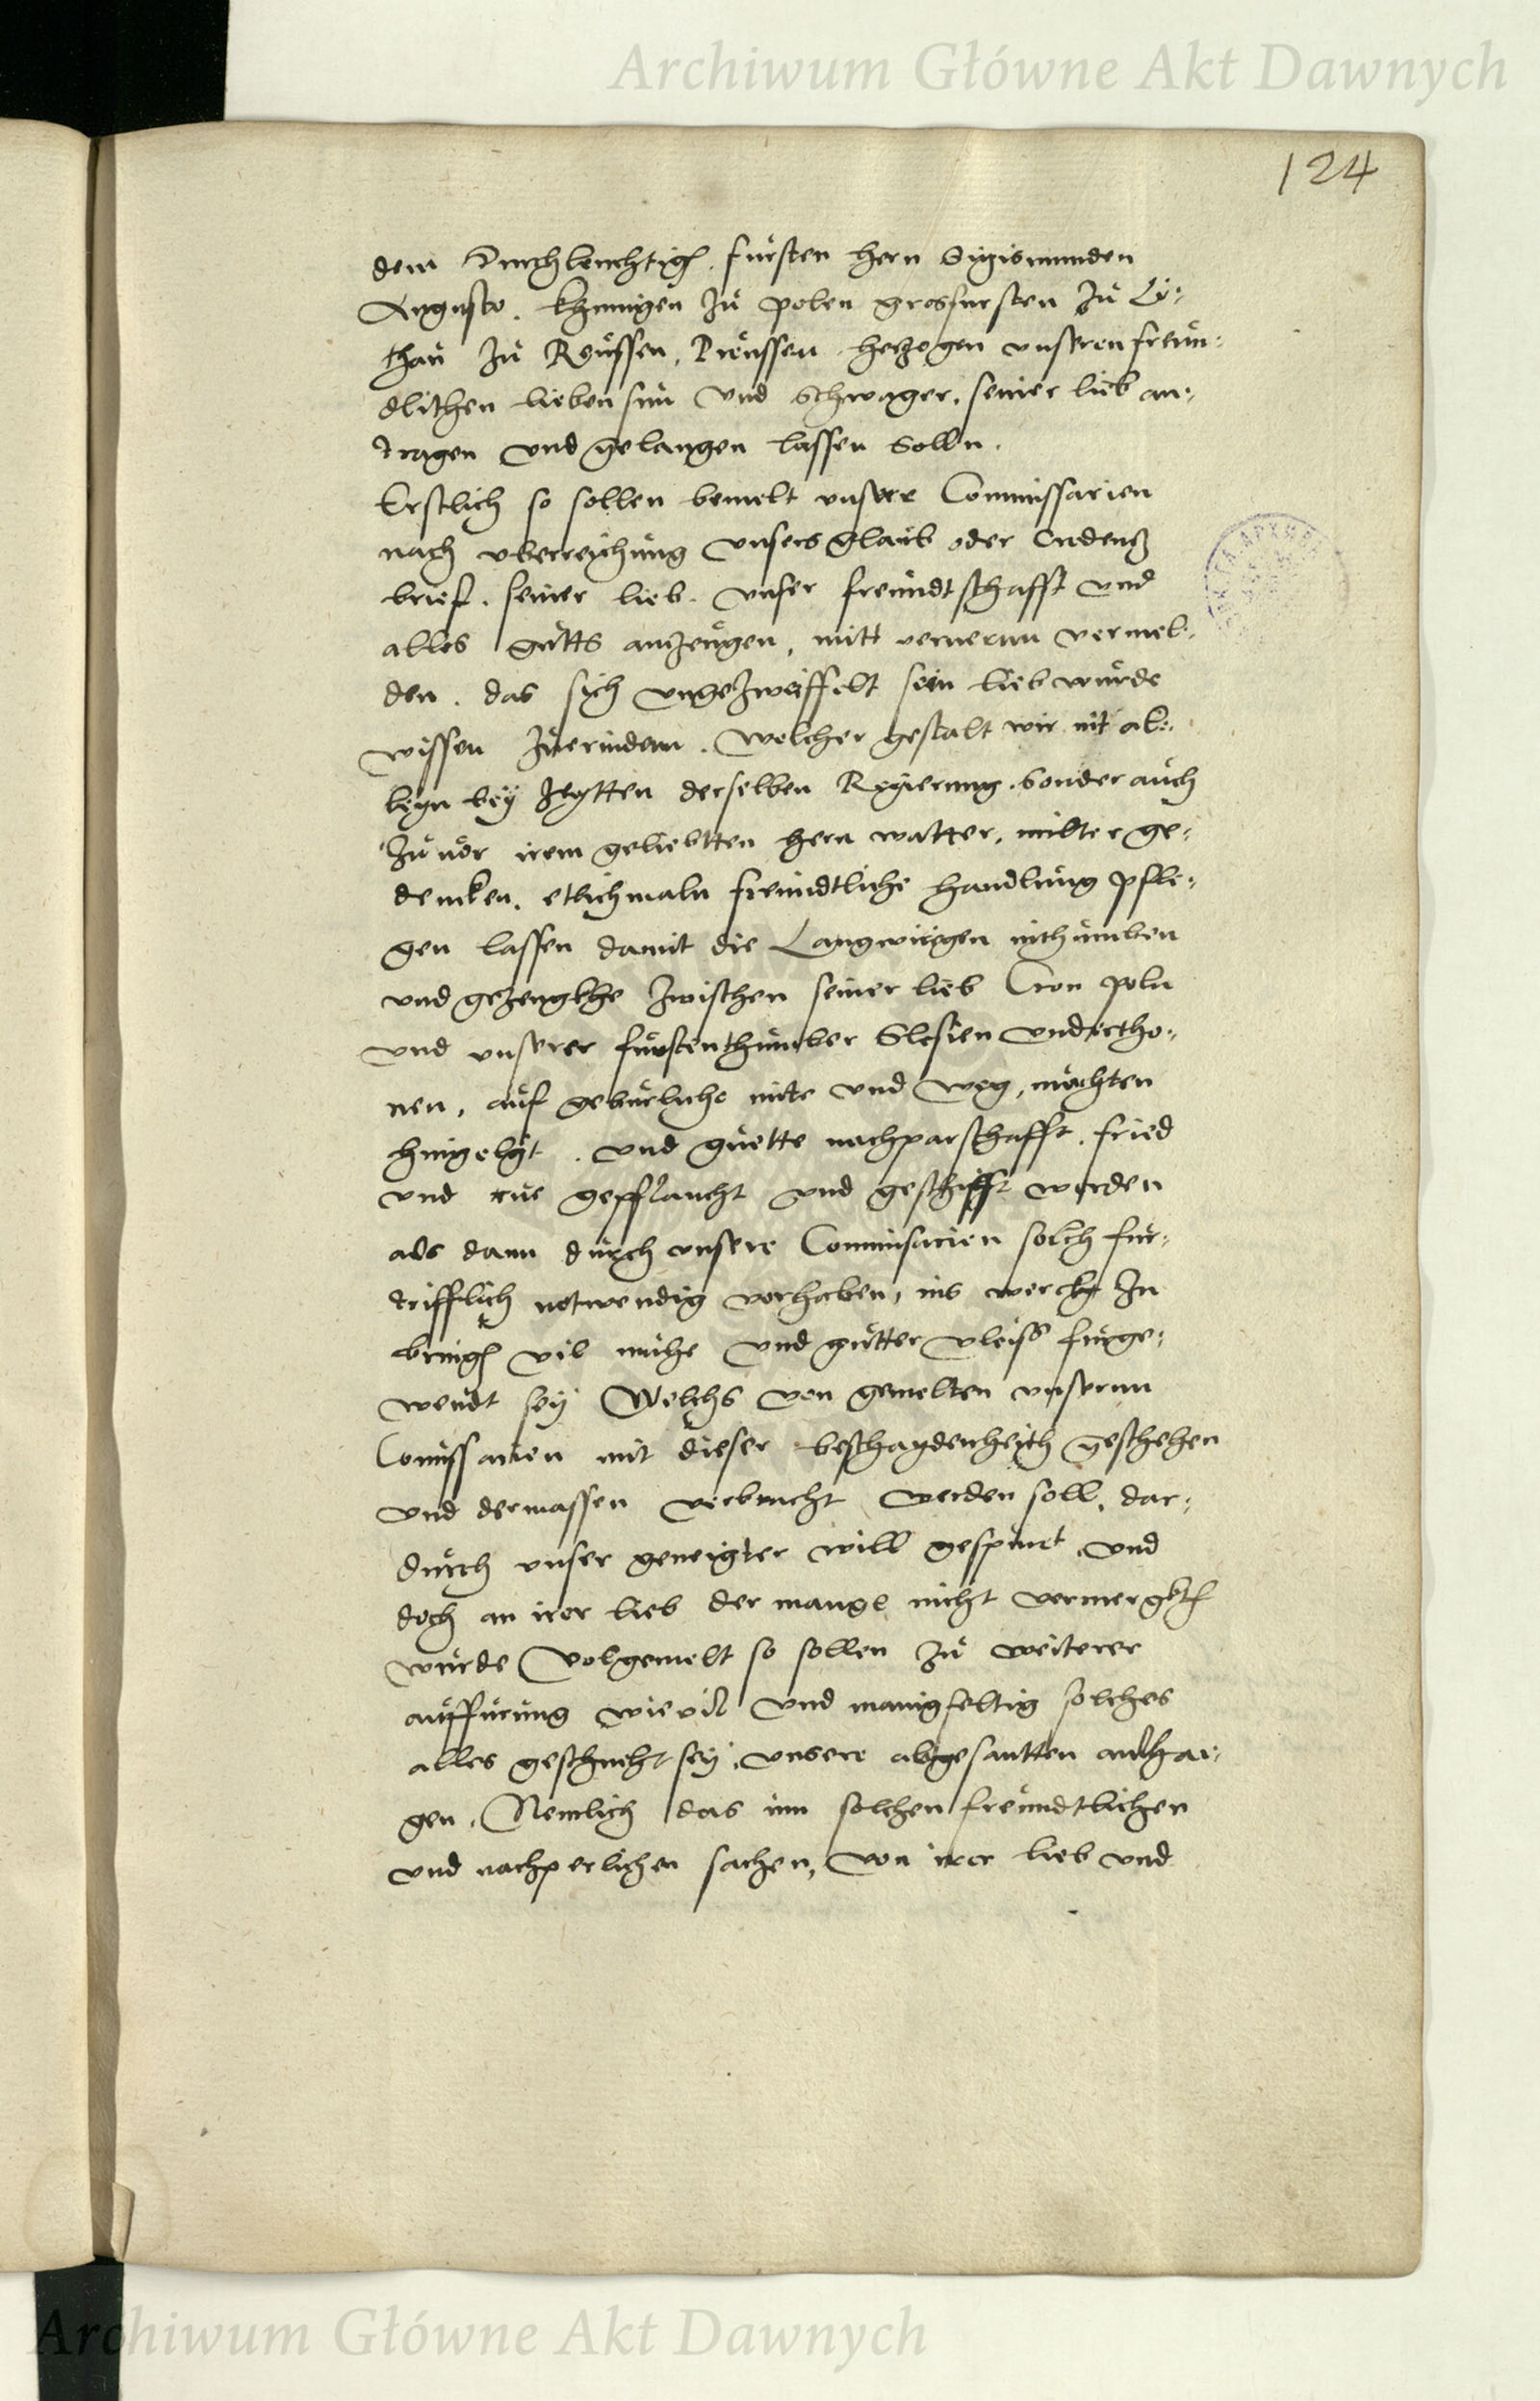 Archiwum Główne Akt Dawnych
124
dem Durchleuchtigē. fursten hern Sigismunden
Augusto. Khunigen zu polen grosfursten zu Ly:
thaü zu Reüssen, Preüssen herzogen unseren freun:
dlichen lieben sun und schwager, seiner lieb an:
tragen und gelangen lassen solln.
Erstlich so sollen bemelt unsere Commissarien
nach uberreichung unsers glaub oder Credentz
brief. seiner lieb. unser freundtschafft und
alles gutts anzeugen, mitt vermel:
den. das sich ungezweiffelt sein lieb wurde
wissen zuerindern. Welcher gestalt wir nit al:
leyn bey derselben Regierung. sonder auch
zuuor irem geliebtten hern vatter, milter ge:
dencken. etlichmaln freundtliche handlung pfle:
gen lassen damit die Langwirigen
und gezengkhe zwischen seiner lieb Cron poln
und unserer furstenthumber Slesien undertho:
nen, auf geburliche mite und weg, mochten
hingelegt. und guette nachparschafft. fried
und rue gepflantzt und werden
als dann durch unsere Commissarien solch fur:
trifflich notwendig vorhaben, ins werckh zu
bringē vil muhe und gutter vleiss furge:
wendt sey Welchs von gemelten unsernn
Comissarien mit dieser beschaydenheyth geschehen
und dermassen verbracht werden soll, dar:
durch unser geneigter will gespurt, und
doch an irer lieb der mangl nicht vermergkt
wurde Volgemelt so sollen zu weiterer
auffurung wievil und manigfeltig solches
alles geschucht sey, unsere abgesantten anzai:
gen. Nemlich das inn solchen freundtlichen
und nachperlichen sachen, von irer lieb und
Archiwum Główne Akt Dawnych